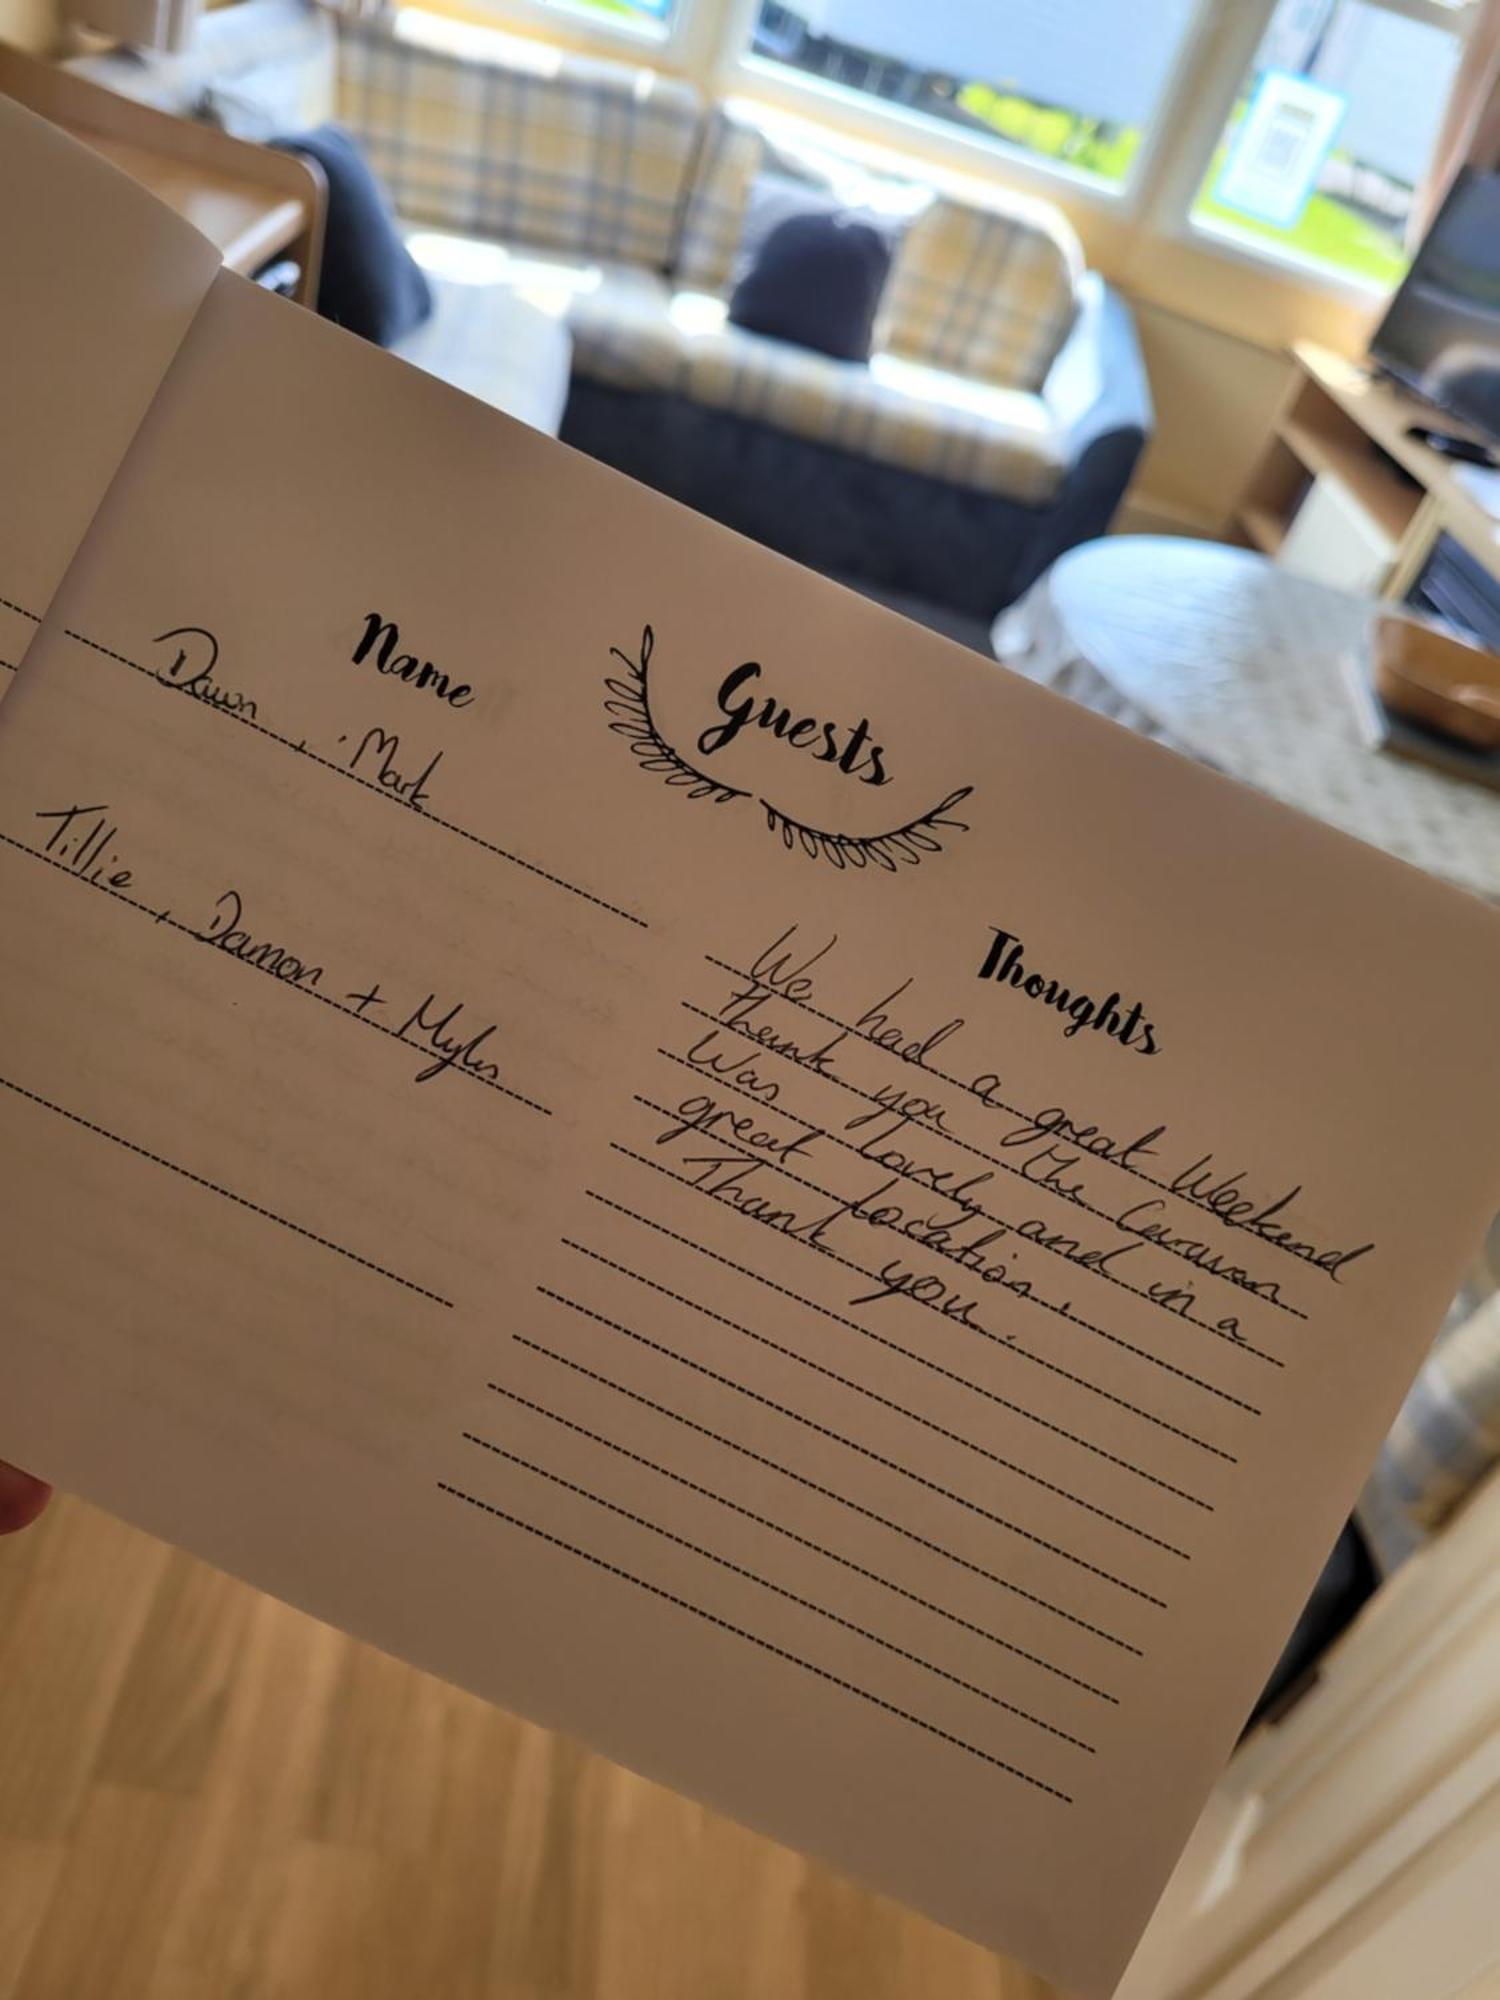 Guests
Name
Dawn, Mark
Tillie, Damon + Myles
Thoughts
We had a great Weekend
thank you the Caravan
Was lovely and in a
great location.
Thank you.